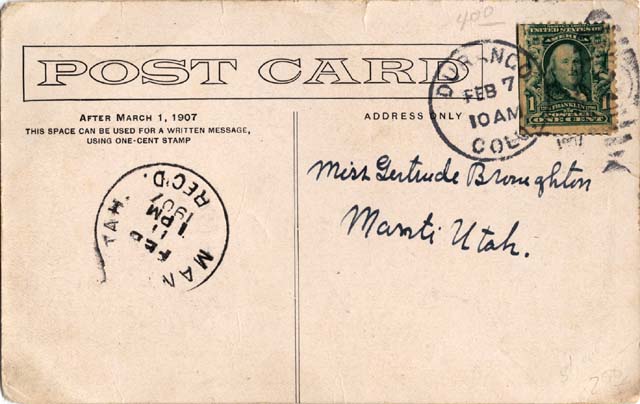 400
POST CARD
AFTER MARCH 1, 1907
THIS SPACE CAN BE USED FOR A WRITTEN MESSAGE,
USING ONE-CENT STAMP
ADDRESS ONLY
DURANGO
FEB 7
10 AM
COLO.
1907
UNITED STATES OF
1
FRANKLIN
POSTAGE
ONE CENT
Miss Gertrude Broughton
Manti Utah.
MAN
TAH.
FEB
11
1 PM
1907
REC'D.